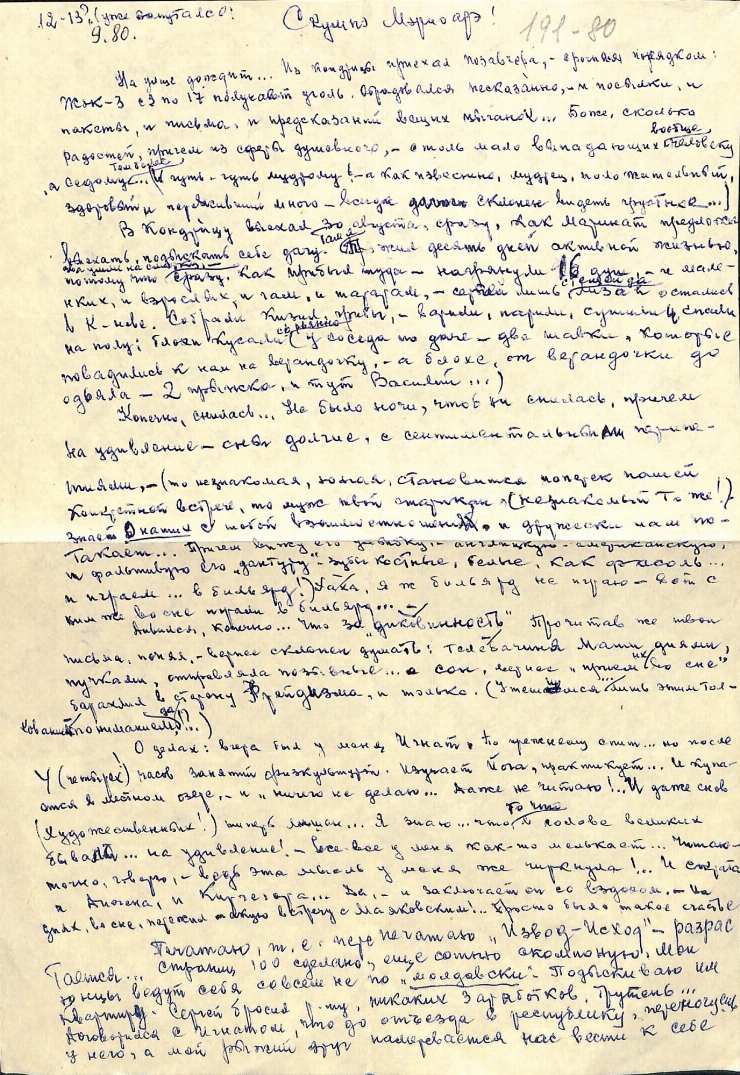 12-13?, (уже запутался:
9.80.
Скумпэ Мэриоарэ!
191-80
На улице дождит... Из Кондрицы приехал позавчера, - срочным порядком:
ЖЭК-3 с 3 по 17 получают уголь. Обрадовался несказанно, - и посылки, и
пакеты, и письма, и предсказаний вещих цыганок... Боже, сколько
радостей, причем из сферы душевного, - столь мало выпадающих вообще человеку
, а седому тем более... (И чуть-чуть мудрому! - а как известно, мудрец, положительный,
здоровый и переживший много - всегда склонен видеть грустные...)
В Кондрицу выехал 30 августа, сразу, как Маринат предложил
выехать, подыскать себе дачу. Там жил десять дней активной жизнью,
потому что сразу, как прибыл туда - нагрянули 16 душ, - и мале-
ньких, и взрослых, и гам, и тарарам, - лишь Лиза и остались
в К-неве. Собрали кизил, грибы, - варили, парили, сушили и спали
на полу; блохи кусали серьезно (у соседа по даче - две шавки, которые
повадились к нам на верандочку, - а блохе, от верандочки до
одеяла - 2 прыжка, и тут Василий...)
Конечно, снилась... Не было ночи, чтоб не снилась, причем
на удивление - сны долгие, с сентиментальными перипе-
тиями, - (то незнакомая, юная, становится поперек нашей
конкретной встрече, то муж твой старикан (незнакомый тоже!)
знает о наших с тобой взаимоотношениях, и дружески нам по-
такает... Причем вижу его улыбку, - английскую - американскую,
и фальшивую его "дантуру" - зубы костные, белые, как фасоль...
и играем... в бильярд!) Хаха, я ж бильярд не играю - вот с
ким же во сне играли в бильярд... -
Дивился, конечно... Что за "диковинность" Прочитав же твои
письма, понял, - вернее склонен думать: телебачиня Мати днями,
пучками, отправляла позывные... а сон, вернее "прием их во сне"
барахлил в сторону Фрейдизма, и только. (Утешаемся лишь этим тол-
кованием (пониманием, да)!?...)
О делах: вчера был у меня Игнат. По прежнему спит... но после
4 (четырех!) часов занятий физкультурой. Изучает Йога, практикует... И купа-
ется в местном озере, - и "ничего не делаю... Даже не читаю!.. И даже снов
(художественных!) теперь лишен... А знаю... что то что в голове великих
бывали... на удивление! - все-все у меня как-то мелькает... Читаю-
точно, говорю, - ведь эта мысль у меня же чиркнула!... И Сократа
и Диогена, и Киркегора... Да, - и заключает он со вздохом. - На
днях, во сне, пережил такую встречу с Маяковским!.. Просто было такое счастье
Печатаю, т. е. перепечатаю "Извод-Исход" - разрас
тается... страниц 100 сделано, еще сотню скомпоную. Мои
юнцы ведут себя совсем не по "молдавски". Подыскиваю им
квартиру. Сергей бросил р-ту, никаких заработков, трутень...
Договорился с Игнатом, что до отъезда в республику, переночуем
у него, а мой рыжий друг намеревается нас вести к себе